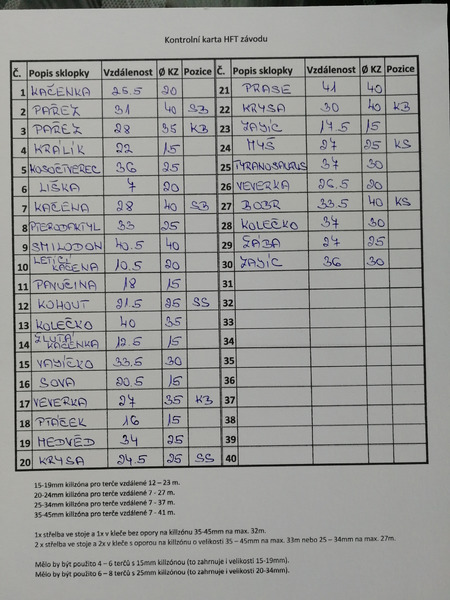 Kontrolní karta HFT závodu
Č. Popis sklopky Vzdálenost Ø KZ Pozice
1 KAČENKA 25.5 20
2 PAŘEZ 31 40 SB
3 PAŘEZ 28 35 KB
4 KRÁLÍK 22 15
5 KOSOČTVEREC 36 25
6 LIŠKA 7 20
7 KAČENA 28 40 SB
8 PTERODAKTYL 33 25
9 SMILODON 40.5 40
10 LETÍCÍ KAČENA 10.5 20
11 PAVUČINA 18 15
12 KOHOUT 21.5 25 SS
13 KOLEČKO 40 35
14 ŽLUTÁ KAČENKA 12.5 15
15 VAJÍČKO 33.5 30
16 SOVA 20.5 15
17 VEVERKA 27 35 KB
18 PTÁČEK 16 15
19 MEDVĚD 34 25
20 KRYSA 24.5 25 SS
21 PRASE 41 40
Popis sklopky Vzdálenost Ø KZ Pozice
22 KRYSA 30 40 KB
23 ZAJÍC 17.5 15
24 MYŠ 27 25 KS
25 TYRANOSAURUS 37 30
26 VEVERKA 26.5 20
27 BOBR 33.5 40 KS
28 KOLEČKO 37 30
29 ŽÁBA 27 25
30 ZAJÍC 36 30
31
32
33
34
35
36
37
38
39
40
15-19mm killzóna pro terče vzdálené 12 – 23 m.
20-24mm killzóna pro terče vzdálené 7 - 27 m.
25-34mm killzóna pro terče vzdálené 7 - 37 m.
35-45mm killzóna pro terče vzdálené 7 - 41 m.
1x střelba ve stoje a 1x v kleče bez opory na killzónu 35-45mm na max. 32m.
2 x střelba ve stoje a 2x v kleče s oporou na killzónu o velikosti 35 – 45mm na max. 33m nebo 25 – 34mm na max. 27m.
Mělo by být použito 4 – 6 terčů s 15mm killzónou (to zahrnuje i velikosti 15-19mm).
Mělo by být použito 6 – 8 terčů s 25mm killzónou (to zahrnuje i velikosti 20-34mm).